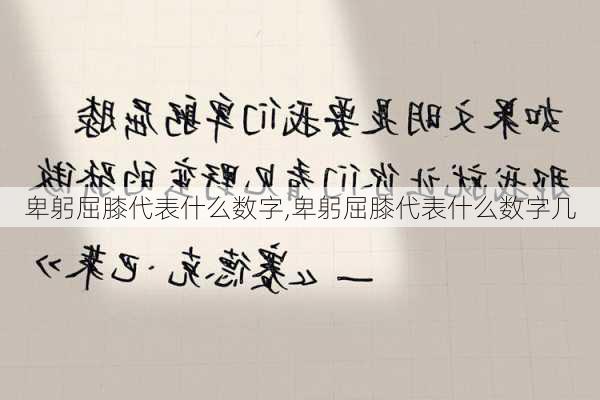 如果文明是要我们卑躬屈膝
那我就让你们看见野蛮的骄傲
卑躬屈膝代表什么数字,卑躬屈膝代表什么数字几
—《赛德克·巴莱》